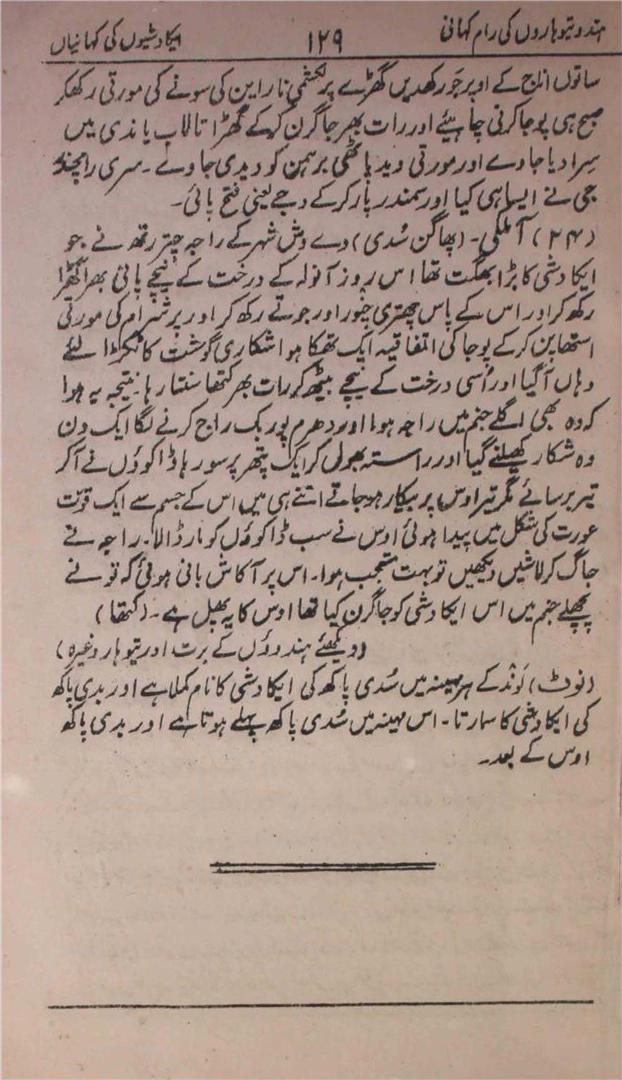 ہندو تیوہاروں کی رام کہانی ۱۲۹ ایکادشیوں کی کہانیاں
ساتوں اناج کے اوپر جَو رکھدیں گھڑے پر لکشمی نارا ین کی سونے کی مورتی رکھکر
صبح ہی پوجا کرنی چاہیئے اور رات بھر جاگرن کرکے گھڑا تالاب یا ندی میں
سِرا دیا جاوے اور مورتی وید پاٹھی برہمن کو دیدی جاوے ۔ سری رامچندر
جی نے ایسا ہی کیا اور سمندر پار کرکے وجے یعنی فتح پائی۔
(۲۴) آملکی ۔ (پھاگن سُدی) وے دِش شہر کے راجہ چیتر رتھ نے جو
ایکادشی کا بڑا بھگت تھا اس روز آنولہ کے درخت کے نیچے پانی بھرا گھڑا
رکھ کر اور اس کے پاس چھتری چنور اور جوتے رکھ کر اور پرشرام کی مورتی
استھاپن کرکے پوجا کی اتفاقیہ ایک تھکا ہوا شکاری گوشت کا ٹکڑا لئے
وہاں آگیا اور اُسی درخت کے نیچے بیٹھ کر رات بھر کتھا سنتا رہا نتیجہ یہ ہوا
کہ وہ بھی اگلے جنم میں راجہ ہوا اور دھرم پوربک راج کرنے لگا ایک دن
وہ شکار کھیلنے گیا اور راستہ بھول کر ایک پتھر پر سو رہا ڈاکوؤں نے آکر
تیر برسائے مگر تیر اوس پر بیکار ہوجاتے اتنے ہی میں اس کے جسم سے ایک قوت
عورت کی شکل میں پیدا ہوئی اوس نے سب ڈاکوؤں کو مار ڈالا۔ راجہ نے
جاگ کر لاشیں دیکھیں تو بہت متعجب ہوا۔ اس پر آکاش بانی ہوئی کہ تو نے
پچھلے جنم میں اس ایکادشی کو جاگرن کیا تھا اوس کا یہ پھل ہے۔ (کتھا)
(دیکھئے ہندوؤں کے برت اور تیوہار وغیرہ)
(نوٹ) لَوند کے ہر مہینہ میں سُدی پاکھ کی ایکادشی کا نام کملا ہے اور بدی پاکھ
کی ایکادشی کا سارتا۔ اس مہینہ میں سُدی پاکھ پہلے ہوتا ہے اور بدی پاکھ
اوس کے بعد۔